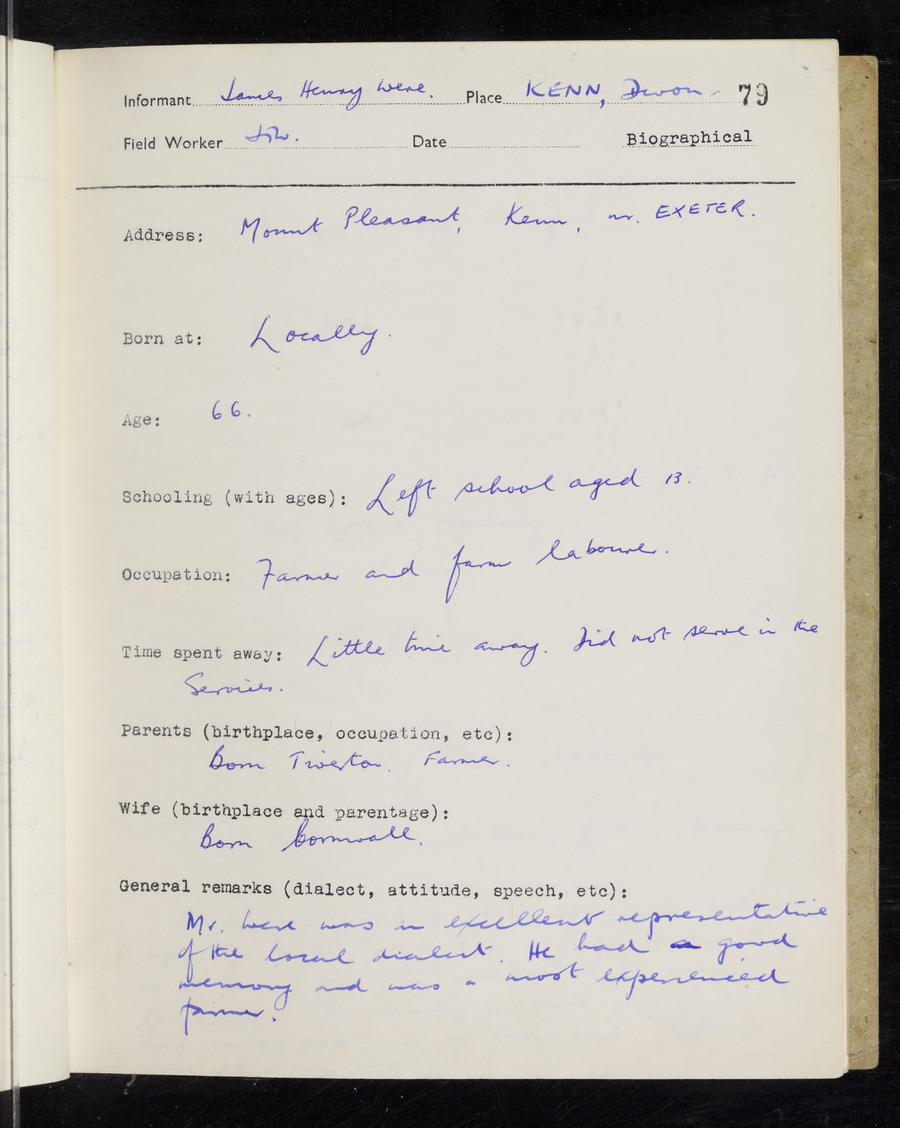 Informant James Henry Were. Place KENN, Devon. 79
Field Worker Date Biographical
Address: Mount Pleasant, Kenn, nr. EXETER.
Born at: Locally.
Age: 66.
Schooling (with ages): Left school aged 13.
Occupation: Farmer and farm labourer.
Time spent away: Little time away. Did not serve in the
Services.
Parents (birthplace, occupation, etc):
Born Tiverton. Farmer.
Wife (birthplace and parentage):
Born Cornwall.
General remarks (dialect, attitude, speech, etc):
Mr. Were was an excellent representative
of the local dialect. He had a good
memory and was a most experienced
farmer.